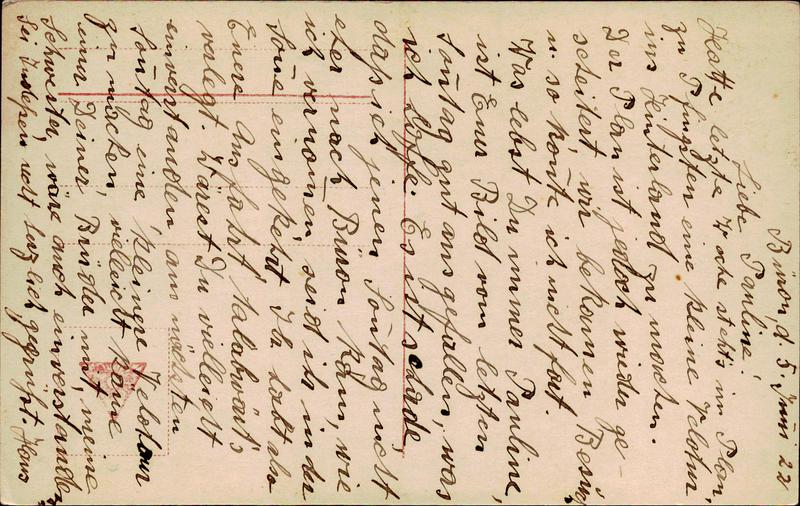 Büron, d. 5. Juni 22
Liebe Pauline!
Hatte letzte Woche stets im Plan,
zu Pfingsten eine kleine Velotur
ins Hinterland zu machen.
Der Plan ist jedoch wieder ge-
scheitert, wir bekamen Besuch
u. so konnte ich nicht fort.
Was lebst Du immer Pauline,
ist Euer Bild vom letzten
Sontag gut ausgefallen, was
ich hoffe. Es ist schade
dass ich jenen Sontag nicht
eher nach Büron kam, wie
ich vernomen seid ihr in der
Sone eingekehrt. Ihr habt also
Euere Ausfahrt talabwärts
verlegt. Wärest Du vielleicht
einverstanden am nächsten
Sontag eine kleinere Velotour
zu machen, vielleicht käme
einer Deiner Brüder mit, meine
Schwester wäre auch einverstanden.
Sei indessen recht herzlich gegrüsst. Hans